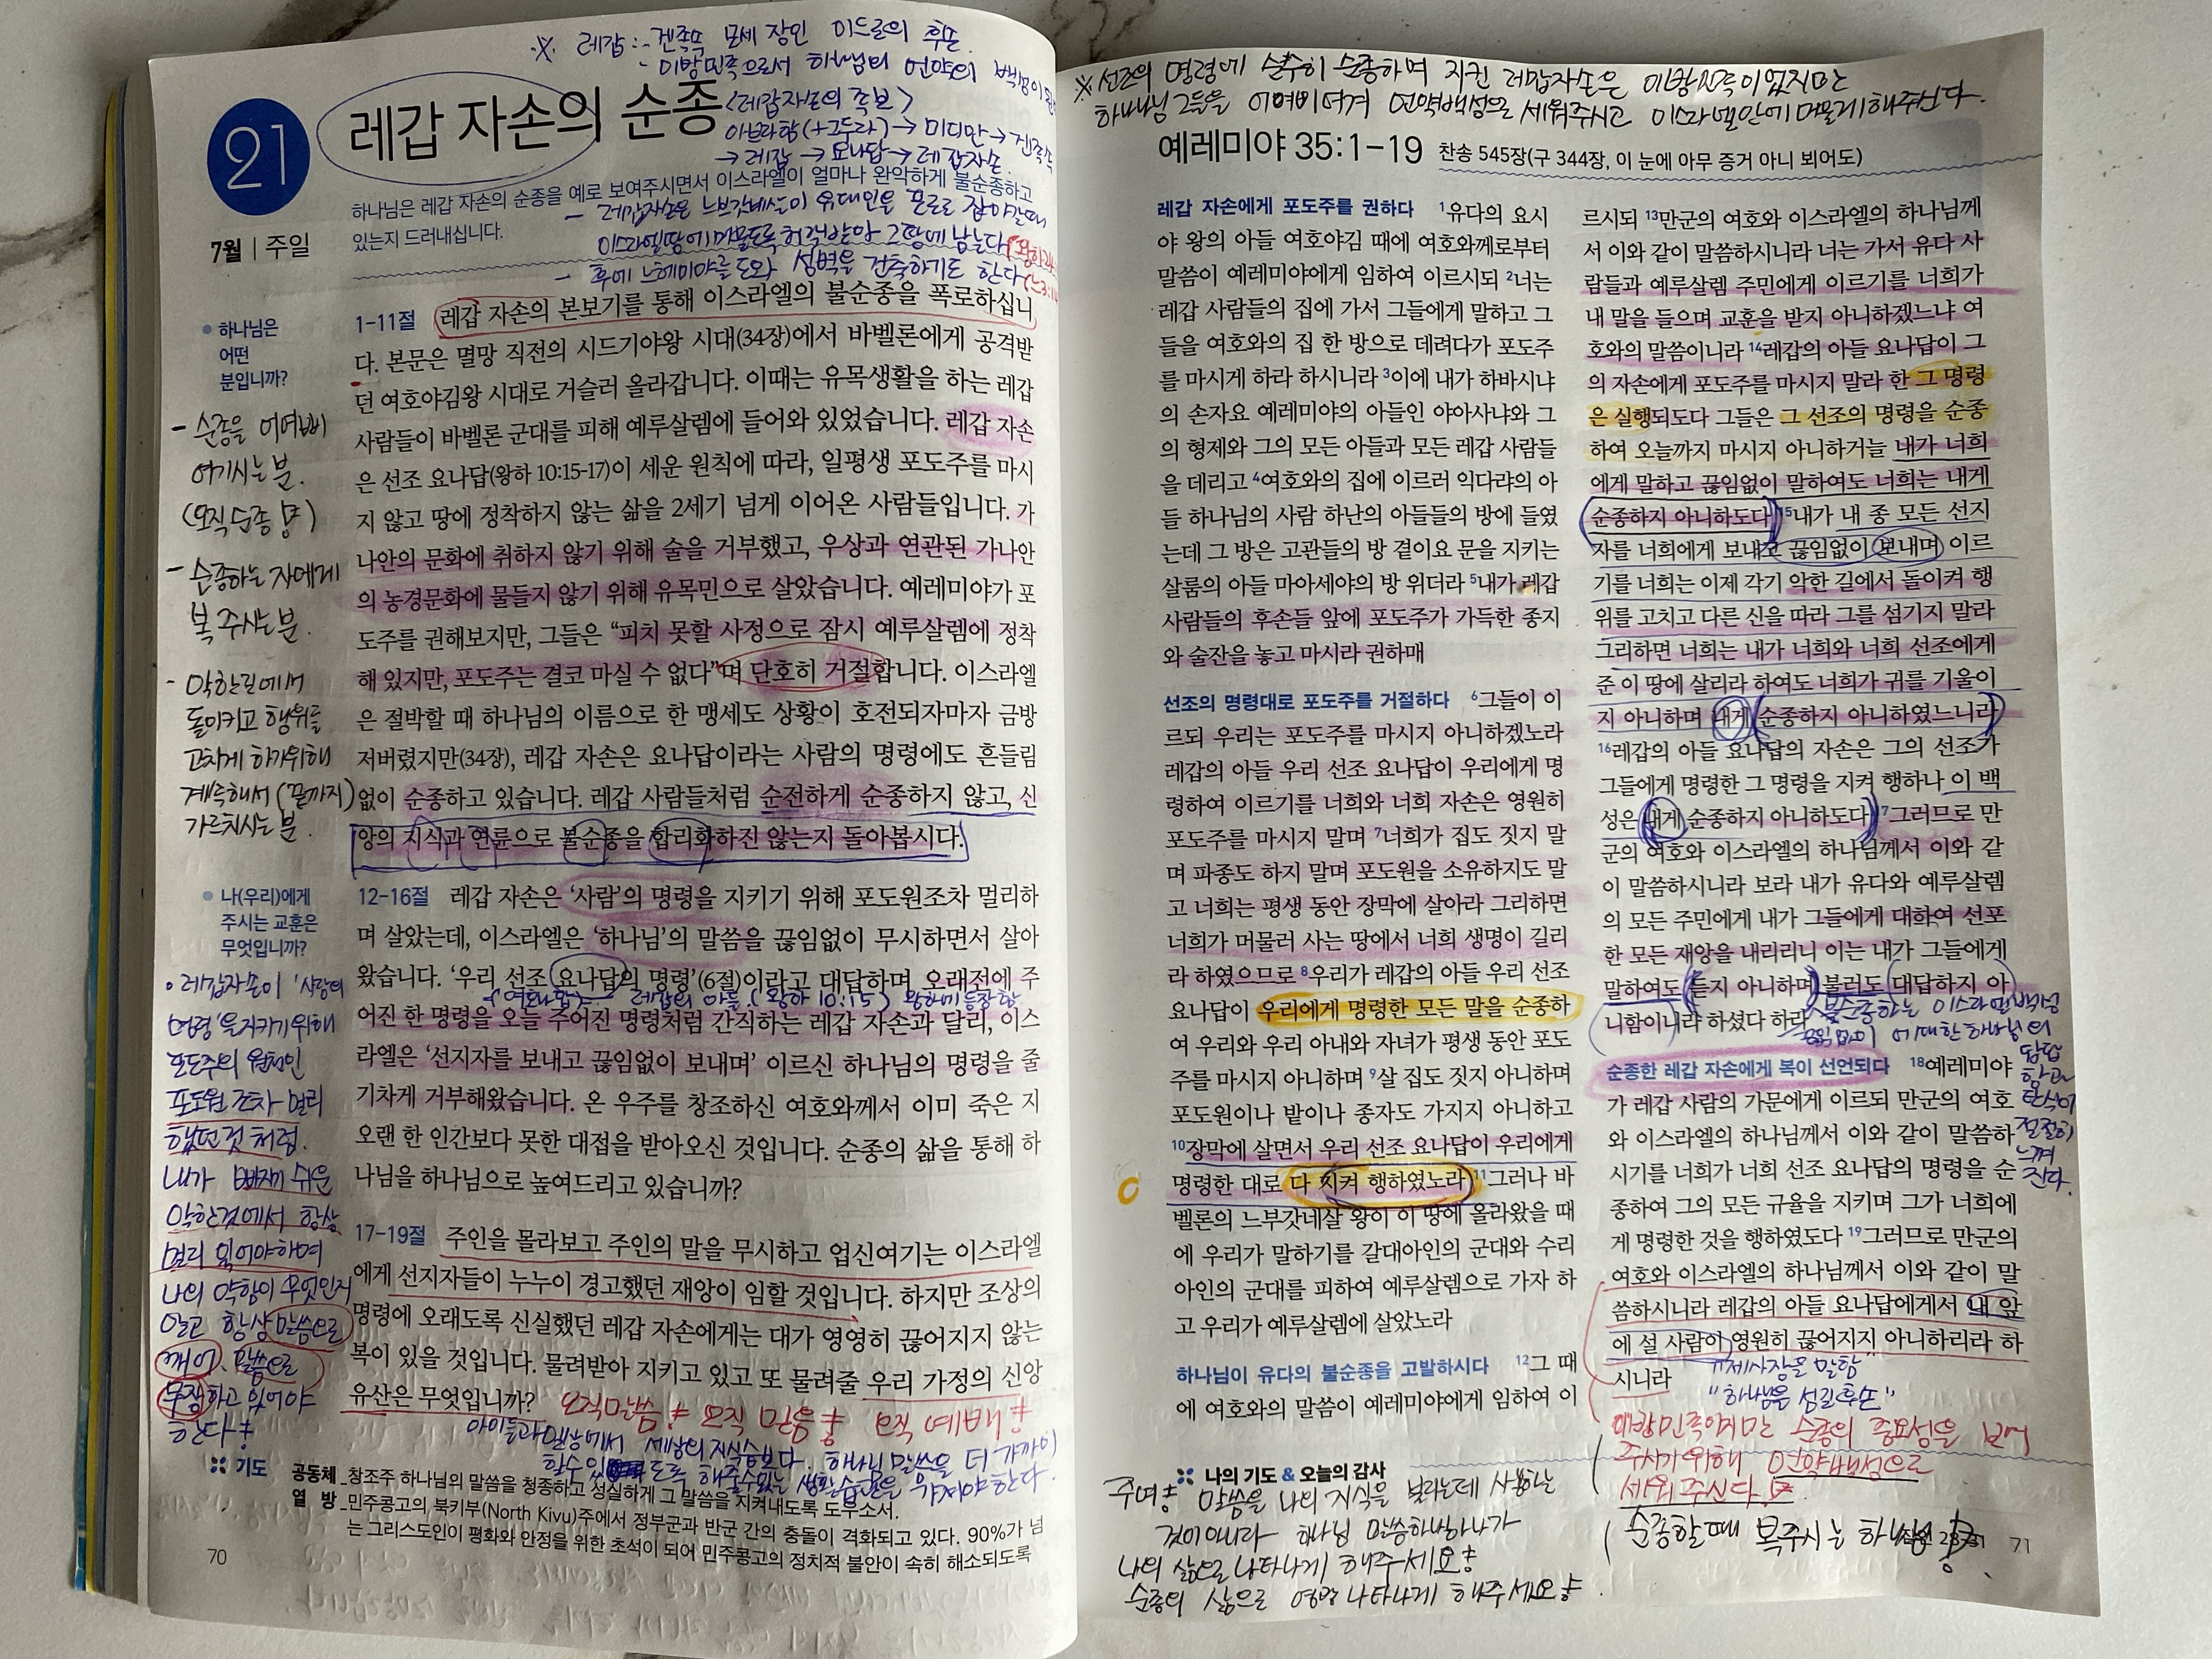 ※ 레갑 : - 겐족속 모세 장인 이드로의 후손.
- 이방민족으로서 하나님의 언약의 백성이
21
레갑 자손의 순종
<레갑자손의 족보>
아브라함(+그두라) → 미디안 → 겐족속
→ 레갑 → 요나답 → 레갑자손.
7월 | 주일
하나님은 레갑 자손의 순종을 예로 보여주시면서 이스라엘이 얼마나 완악하게 불순종하고
있는지 드러내십니다.
- 레갑자손은 느브갓네살이 유대인을 포로로 잡아갈때
이스라엘땅에 머물도록 허락받아 그땅에 남는다
- 후에 느헤미야를 도와 성벽을 건축하기도 한다
하나님은
어떤
분입니까?
- 순종을 어여삐
여기시는 분.
(오직 순종)
- 순종하는 자에게
복 주시는 분.
- 악한길에서
돌이키고 행위를
고치게 하기위해
계속해서 (끝까지)
가르치시는 분.
1-11절 레갑 자손의 본보기를 통해 이스라엘의 불순종을 폭로하십니
다. 본문은 멸망 직전의 시드기야왕 시대(34장)에서 바벨론에게 공격받
던 여호야김왕 시대로 거슬러 올라갑니다. 이때는 유목생활을 하는 레갑
사람들이 바벨론 군대를 피해 예루살렘에 들어와 있었습니다. 레갑 자손
은 선조 요나답(왕하 10:15-17)이 세운 원칙에 따라, 일평생 포도주를 마시
지 않고 땅에 정착하지 않는 삶을 2세기 넘게 이어온 사람들입니다. 가
나안의 문화에 취하지 않기 위해 술을 거부했고, 우상과 연관된 가나안
의 농경문화에 물들지 않기 위해 유목민으로 살았습니다. 예레미야가 포
도주를 권해보지만, 그들은 “피치 못할 사정으로 잠시 예루살렘에 정착
해 있지만, 포도주는 결코 마실 수 없다”며 단호히 거절합니다. 이스라엘
은 절박할 때 하나님의 이름으로 한 맹세도 상황이 호전되자마자 금방
저버렸지만(34장), 레갑 자손은 요나답이라는 사람의 명령에도 흔들림
없이 순종하고 있습니다. 레갑 사람들처럼 순전하게 순종하지 않고, 신
앙의 지식과 연륜으로 불순종을 합리화하진 않는지 돌아봅시다.
나(우리)에게
주시는 교훈은
무엇입니까?
• 레갑자손이 '사람의
명령'을 지키기 위해
포도주의 원천인
포도원 조차 멀리
했던것 처럼.
내가 빠지기 쉬운
악한것에서 항상
멀리 있어야하며
나의 약함이 무엇인지
알고 항상 말씀으로
깨어, 말씀으로
무장하고 있어야
한다!
12-16절 레갑 자손은 ‘사람’의 명령을 지키기 위해 포도원조차 멀리하
며 살았는데, 이스라엘은 ‘하나님’의 말씀을 끊임없이 무시하면서 살아
왔습니다. ‘우리 선조 요나답의 명령’(6절)이라고 대답하며, 오래전에 주
(여호나답) - 레갑의 아들 (왕하 10:15) 왕하에 등장함
어진 한 명령을 오늘 주어진 명령처럼 간직하는 레갑 자손과 달리, 이스
라엘은 ‘선지자를 보내고 끊임없이 보내며’ 이르신 하나님의 명령을 줄
기차게 거부해왔습니다. 온 우주를 창조하신 여호와께서 이미 죽은 지
오랜 한 인간보다 못한 대접을 받아오신 것입니다. 순종의 삶을 통해 하
나님을 하나님으로 높여드리고 있습니까?
17-19절 주인을 몰라보고 주인의 말을 무시하고 업신여기는 이스라엘
에게 선지자들이 누누이 경고했던 재앙이 임할 것입니다. 하지만 조상의
명령에 오래도록 신실했던 레갑 자손에게는 대가 영영히 끊어지지 않는
복이 있을 것입니다. 물려받아 지키고 있고 또 물려줄 우리 가정의 신앙
유산은 무엇입니까? 오직 말씀! 오직 믿음! 오직 예배!
아이들과 일상에서 세상의 지식습보다. 하나님 말씀을 더 가까이
할수 있도록 해줄수있는 생활습관을 가져야 한다.
기도 공동체_창조주 하나님의 말씀을 청종하고 성실하게 그 말씀을 지켜내도록 도우소서.
열 방_민주콩고의 북키부(North Kivu)주에서 정부군과 반군 간의 충돌이 격화되고 있다. 90%가 넘
는 그리스도인이 평화와 안정을 위한 초석이 되어 민주콩고의 정치적 불안이 속히 해소되도록
70
※ 선조의 명령에 순수히 순종하며 지킨 레갑자손은 이방민족이었지만
하나님 그들을 어여삐여겨 언약백성으로 세워주시고 이스라엘안에 머물게 해주신다.
예레미야 35:1-19 찬송 545장(구 344장, 이 눈에 아무 증거 아니 뵈어도)
레갑 자손에게 포도주를 권하다 1유다의 요시
야 왕의 아들 여호야김 때에 여호와께로부터
말씀이 예레미야에게 임하여 이르시되 2너는
레갑 사람들의 집에 가서 그들에게 말하고 그
들을 여호와의 집 한 방으로 데려다가 포도주
를 마시게 하라 하시니라 3이에 내가 하바시냐
의 손자요 예레미야의 아들인 야아사냐와 그
의 형제와 그의 모든 아들과 모든 레갑 사람들
을 데리고 4여호와의 집에 이르러 익다랴의 아
들 하나님의 사람 하난의 아들들의 방에 들였
는데 그 방은 고관들의 방 곁이요 문을 지키는
살룸의 아들 마아세야의 방 위더라 5내가 레갑
사람들의 후손들 앞에 포도주가 가득한 종지
와 술잔을 놓고 마시라 권하매
선조의 명령대로 포도주를 거절하다 6그들이 이
르되 우리는 포도주를 마시지 아니하겠노라
레갑의 아들 우리 선조 요나답이 우리에게 명
령하여 이르기를 너희와 너희 자손은 영원히
포도주를 마시지 말며 7너희가 집도 짓지 말
며 파종도 하지 말며 포도원을 소유하지도 말
고 너희는 평생 동안 장막에 살아라 그리하면
너희가 머물러 사는 땅에서 너희 생명이 길리
라 하였으므로 8우리가 레갑의 아들 우리 선조
요나답이 우리에게 명령한 모든 말을 순종하
여 우리와 우리 아내와 자녀가 평생 동안 포도
주를 마시지 아니하며 9살 집도 짓지 아니하며
포도원이나 밭이나 종자도 가지지 아니하고
10장막에 살면서 우리 선조 요나답이 우리에게
명령한 대로 다 지켜 행하였노라 11그러나 바
벨론의 느부갓네살 왕이 이 땅에 올라왔을 때
에 우리가 말하기를 갈대아인의 군대와 수리
아인의 군대를 피하여 예루살렘으로 가자 하
고 우리가 예루살렘에 살았노라
하나님이 유다의 불순종을 고발하시다 12그 때
에 여호와의 말씀이 예레미야에게 임하여 이
르시되 13만군의 여호와 이스라엘의 하나님께
서 이와 같이 말씀하시니라 너는 가서 유다 사
람들과 예루살렘 주민에게 이르기를 너희가
내 말을 들으며 교훈을 받지 아니하겠느냐 여
호와의 말씀이니라 14레갑의 아들 요나답이 그
의 자손에게 포도주를 마시지 말라 한 그 명령
은 실행되도다 그들은 그 선조의 명령을 순종
하여 오늘까지 마시지 아니하거늘 내가 너희
에게 말하고 끊임없이 말하여도 너희는 내게
순종하지 아니하도다 15내가 내 종 모든 선지
자를 너희에게 보내고 끊임없이 보내며 이르
기를 너희는 이제 각기 악한 길에서 돌이켜 행
위를 고치고 다른 신을 따라 그를 섬기지 말라
그리하면 너희는 내가 너희와 너희 선조에게
준 이 땅에 살리라 하여도 너희가 귀를 기울이
지 아니하며 내게 순종하지 아니하였느니라
16레갑의 아들 요나답의 자손은 그의 선조가
그들에게 명령한 그 명령을 지켜 행하나 이 백
성은 내게 순종하지 아니하도다 17그러므로 만
군의 여호와 이스라엘의 하나님께서 이와 같
이 말씀하시니라 보라 내가 유다와 예루살렘
의 모든 주민에게 내가 그들에게 대하여 선포
한 모든 재앙을 내리리니 이는 내가 그들에게
말하여도 듣지 아니하며 불러도 대답하지 아
니함이니라 하셨다 하라
불순종하는 이스라엘백성
에대한 하나님의
답답
함과
탄식이
절절히
느껴
진다.
순종한 레갑 자손에게 복이 선언되다 18예레미야
가 레갑 사람의 가문에게 이르되 만군의 여호
와 이스라엘의 하나님께서 이와 같이 말씀하
시기를 너희가 너희 선조 요나답의 명령을 순
종하여 그의 모든 규율을 지키며 그가 너희에
게 명령한 것을 행하였도다 19그러므로 만군의
여호와 이스라엘의 하나님께서 이와 같이 말
씀하시니라 레갑의 아들 요나답에게서 내 앞
에 설 사람이 영원히 끊어지지 아니하리라 하
시니라
"제사장을 말함"
"하나님을 섬길 후손"
이방민족이지만 순종의 중요성을 보여
주시기 위해 언약백성으로
세워주신다.
순종할때 복주시는 하나님
나의 기도 & 오늘의 감사
주여! 말씀을 나의 지식을 넓히는데 사용하는
것이 아니라 하나님 말씀하나하나가
나의 삶으로 나타나게 해주세요!
순종의 삶으로 열매 나타나게 해주세요!
71